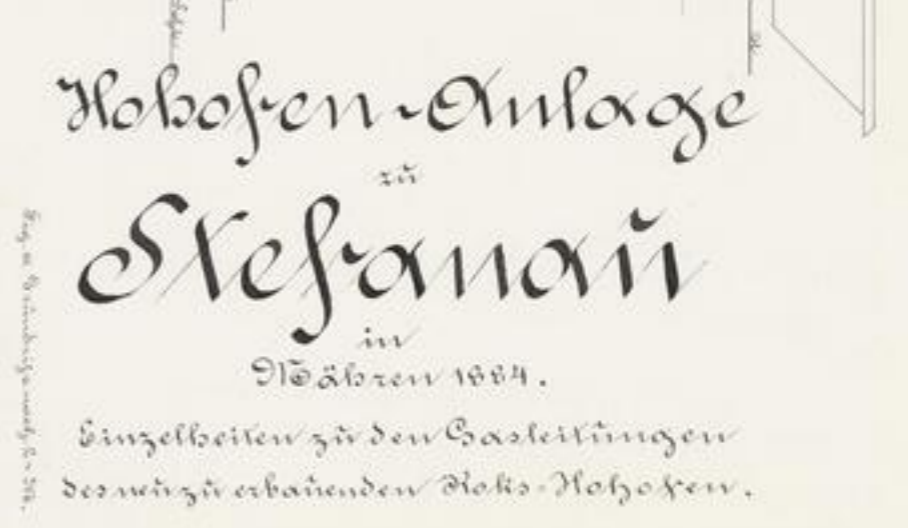 Hohofen-Anlage
zu
Stefanau
in
Mähren 1884.
Einzelheiten zu den Gasleitungen
des neu zu erbauenden Koks-Hohofen.